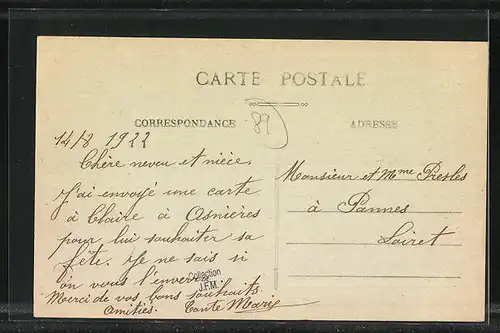 CARTE POSTALE
CORRESPONDANCE
ADRESSE
89
14/8 1922
Chère neveu et nièce,
J'ai envoyé une carte
à Claire à Asnières
pour lui souhaiter sa
fête. Je ne sais si
on vous l'enverra
Merci de vos bons souhaits.
Amitiés. Tante Marie
Collection
J.F.M.
Monsieur et Mme Presles
à Pannes
Loiret